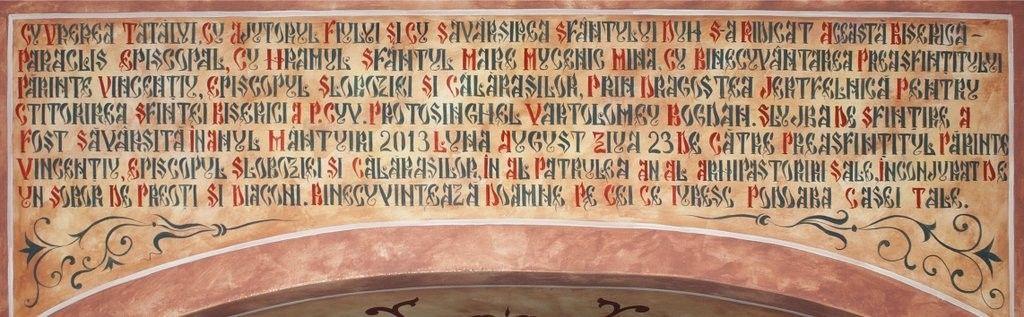 Cu Vrerea Tatălui, Cu Ajutorul Fiului Și Cu Săvârșirea Sfântului Duh S-a Ridicat Această Biserică-
Paraclis Episcopal, Cu Hramul Sfântul Mare Mucenic Mina. Cu Binecuvântarea Preasfințitului
Părinte Vincențiu, Episcopul Sloboziei Și Călărașilor, Prin Dragostea Jertfelnică Pentru
Ctitorirea Sfintei Biserici a P.Cuv. Protosinghel Vartolomeu Bogdan. Slujba De Sfințire a
Fost Săvârșită În Anul Mântuirii 2013 Luna August Ziua 23 De Către Preasfințitul Părinte
Vincențiu, Episcopul Sloboziei Și Călărașilor, În al Patrulea an al Arhipăstoririi Sale, Înconjurat De
Un Sobor De Preoți Și Diaconi. Binecuvintează Doamne Pe Cei Ce Iubesc Podoaba Casei Tale.